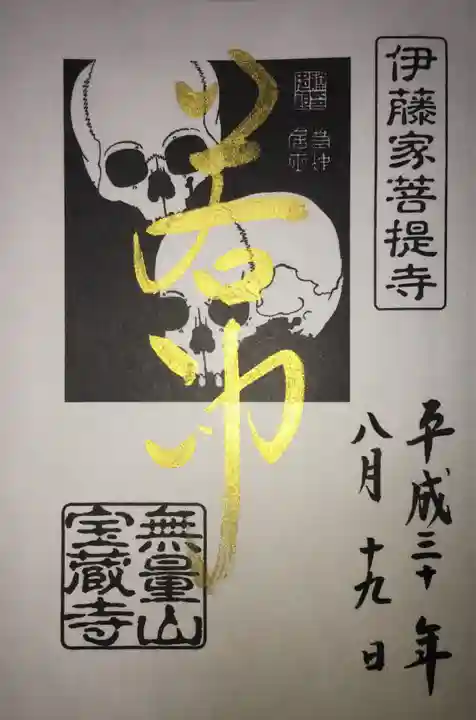 伊藤家菩提寺
若冲
平成三十年
八月十九日
無量山
宝蔵寺